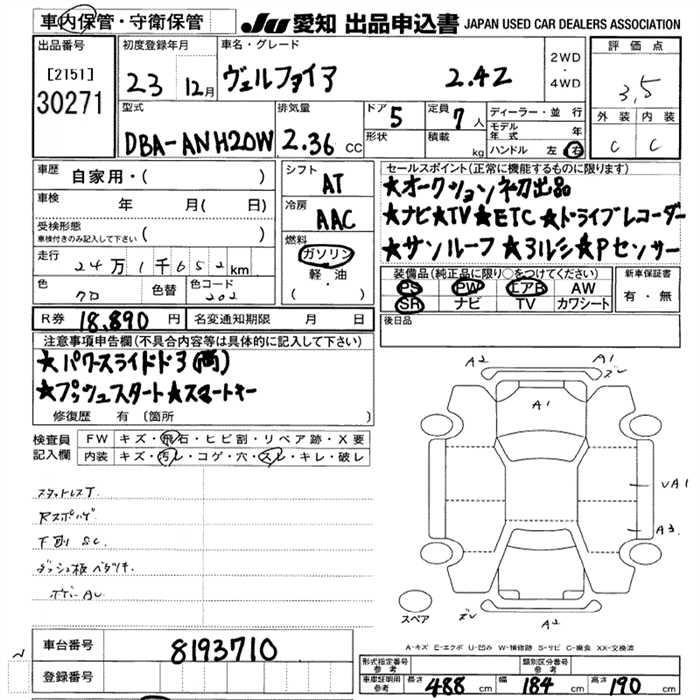 車内保管・守衛保管
JU 愛知 出品申込書 JAPAN USED CAR DEALERS ASSOCIATION
出品番号
[2151]
30271
初度登録年月
23 12月
車名・グレード
ヴェルファイア 2.4Z
2WD
・
4WD
評価点
3,5
外装 内装
C C
型式
DBA-ANH20W
排気量
2.36 CC
ドア 5
形状
定員 7 人
積載 kg
ディーラー・並行
モデル年式 年
ハンドル 左 右
車歴
自家用・( )
車検 年 月( 日)
受検形態
車検付きのみ記入して下さい ( )
走行
24万1千652km
色
クロ
色替
色コード
202
シフト
AT
冷房
AAC
燃料
ガソリン
軽・油
( )
セールスポイント(正常に機能するものに限ります)
★オークション初出品
★ナビ★TV★ETC★ドライブレコーダー
★サンルーフ★3ルミ★Pセンサー
装備品(純正品に限り○をつけてください)
PS PW エアB AW
SR ナビ TV カワシート
新車保証書
有・無
R券 18,890 円
名変通知期限 月 日
後日品
注意事項申告欄(不具合内容等は具体的に記入して下さい)
★パワースライドドア(両)
★プッシュスタート★スマートキー
修復歴 有 〔箇所 〕
検査員
記入欄
FW キズ・飛石・ヒビ割・リペア跡・X要
内装 キズ・汚レ・コゲ・穴・スレ・キレ・破レ
スタッドレスT
下廻 S.C.
ダッシュ板ベタツキ
ボディーAU
A2 A1
ズレ
A1
VA1
A3
スペア
ズレ
A2
A-キズ E-エクボ U-凹み W-補修跡 S-サビ C-腐食 XX-交換済
車台番号
8193710
登録番号
形式指定番号
参考
類別区分番号
参考
車庫証明用
参考
長さ 488 cm 幅 184 cm 高さ 190 cm